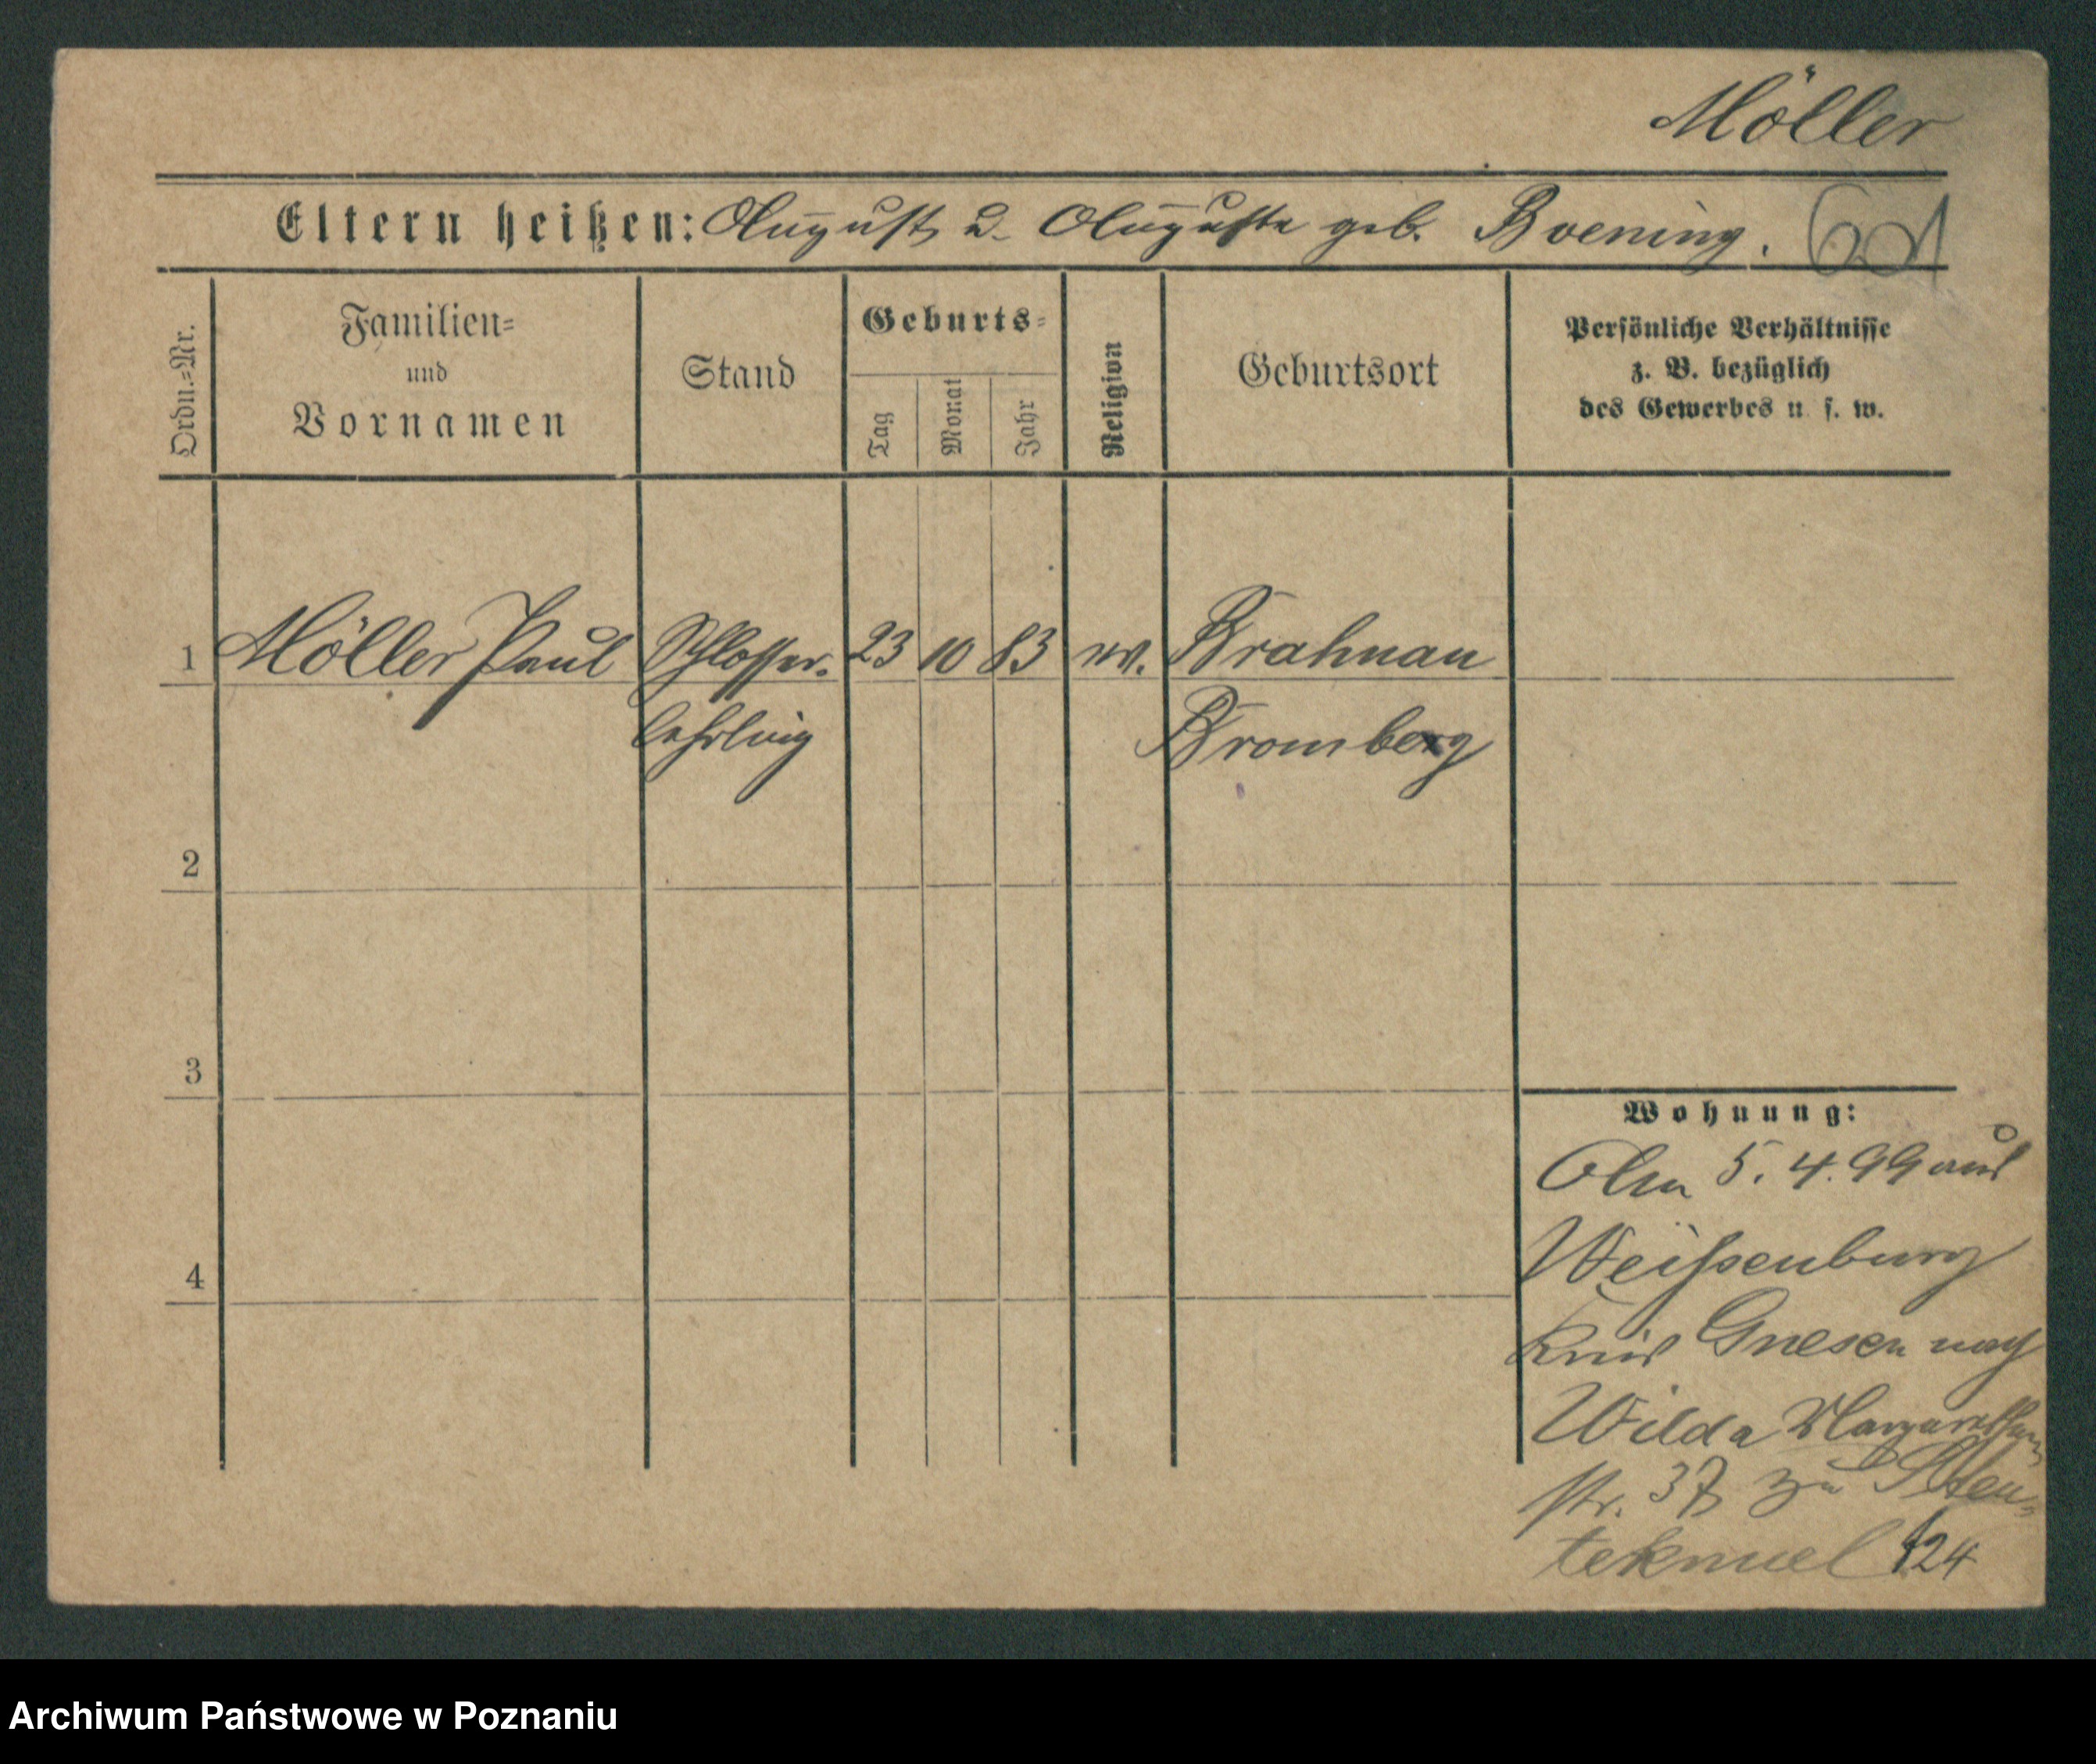 Möller
Eltern heißen: August u. Auguste geb. Boening.
Ordn.=Nr.
Familien=
und
Vornamen
Stand
Geburts=
Tag
Monat
Jahr
Religion
Geburtsort
Persönliche Verhältnisse
z. B. bezüglich
des Gewerbes u. s. w.
1 Möller Paul Schlosser- 23 10 83 ev. Brahnau
lehrling Bromberg
2
3
4
Wohnung:
Am 5. 4. 99 aus
Weißenburg
Kreis Gnesen nach
Wilda Margarethen
str. 37 zu
24
Archiwum Państwowe w Poznaniu